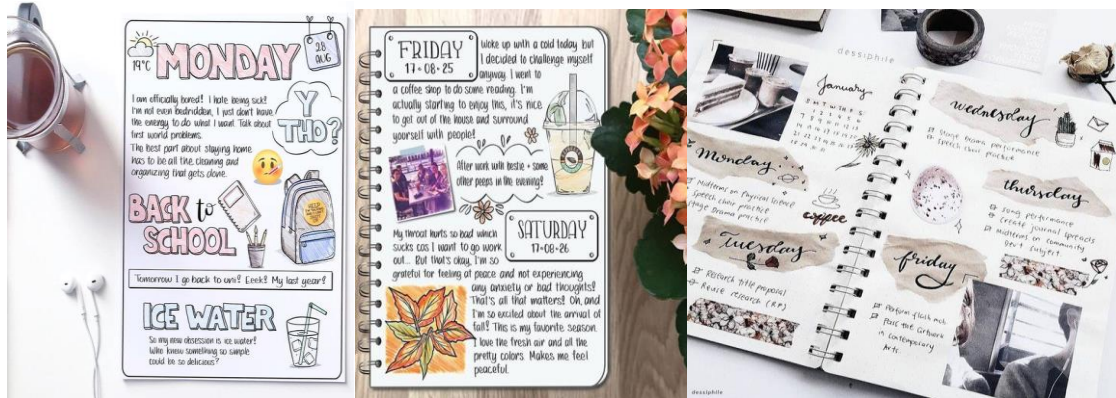 19°C
MONDAY
28
AUG
I am officially bored! I hate being sick!
I'm not even bedridden, I just don't have
the energy to do what I want. Talk about
first world problems.
The best part about staying home
has to be all the cleaning and
organizing that gets done.
Y
THO?
BACK to
SCHOOL
Tomorrow I go back to uni! Eeek! My last year!
ICE WATER
So my new obsession is ice water!
Who knew something so simple
could be so delicious?
FRIDAY
17•08•25
Woke up with a cold today but
I decided to challenge myself
anyway. I went to
a coffee shop to do some reading. I'm
actually starting to enjoy this, it's nice
to get out of the house and surround
yourself with people!
After work with bestie + some
other peeps in the evening!
SATURDAY
17•08•26
My throat hurts so bad which
sucks cos I want to go work
out... But that's okay, I'm so
grateful for feeling at peace and not experiencing
any anxiety or bad thoughts!
That's all that matters! Oh, and
I'm so excited about the arrival of
fall! This is my favorite season.
I love the fresh air and all the
pretty colors. Makes me feel
peaceful.
dessiphile
January
S M T W T F S
Monday
Midterms on Physical Science
Speech choir practice
Stage Drama practice
coffee
Tuesday
Research title proposal
Revise research (RP)
Wednesday
Stage drama performance
Speech choir practice
thursday
Song performance
Create journal spreads
Midterms on community
friday
Perform flash mob
Pass the artwork
in contemporary
Arts.
dessiphile